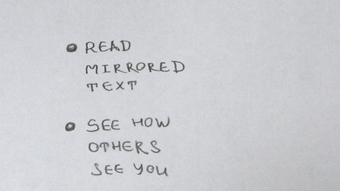 • READ
MIRRORED
TEXT
• SEE HOW
OTHERS
SEE YOU